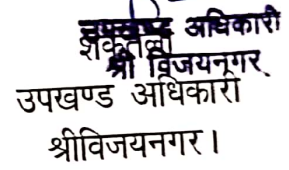 उपखण्ड अधिकारी
शकुंतला
श्री विजयनगर
उपखण्ड अधिकारी
श्रीविजयनगर।